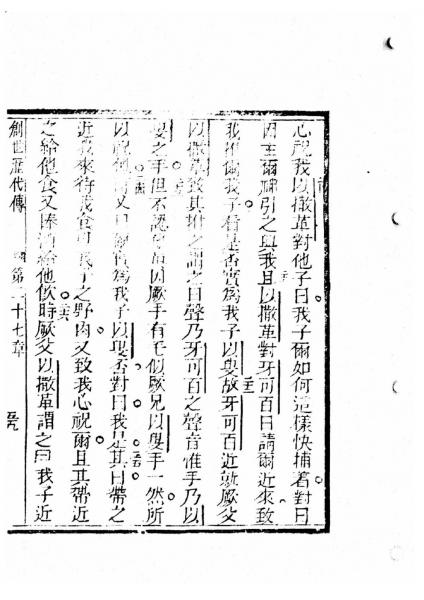 心祝我以撒革對他子曰我子爾如何這樣快捕着對曰
因主爾神引之與我且以撒革對牙可百曰請爾近來致
我推爾我子看是否實爲我子以叟故牙可百近就厥父
以撒革致其推之謂之曰聲乃牙可百之聲音惟手乃以
叟之手但不認可苗因厥手有毛似厥兄以叟手一然所
以祝他又曰爾實爲我子以叟否對曰我是其曰帶之
近我來待我食可我子之野肉又致我心祝爾且其帶近
之給他食又捧酒給他飲時厥父以撒革謂之曰我子近
創世歷代傳 第二十七章